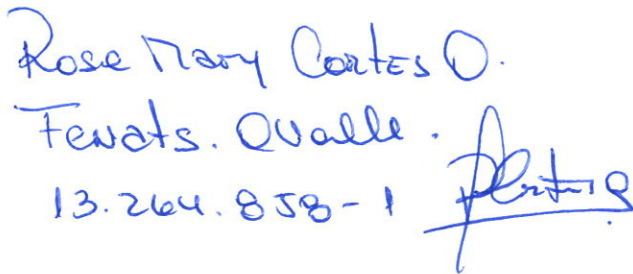 Rose Mary Cortes O.
Fenats. Ovalle.
13.264.858-1